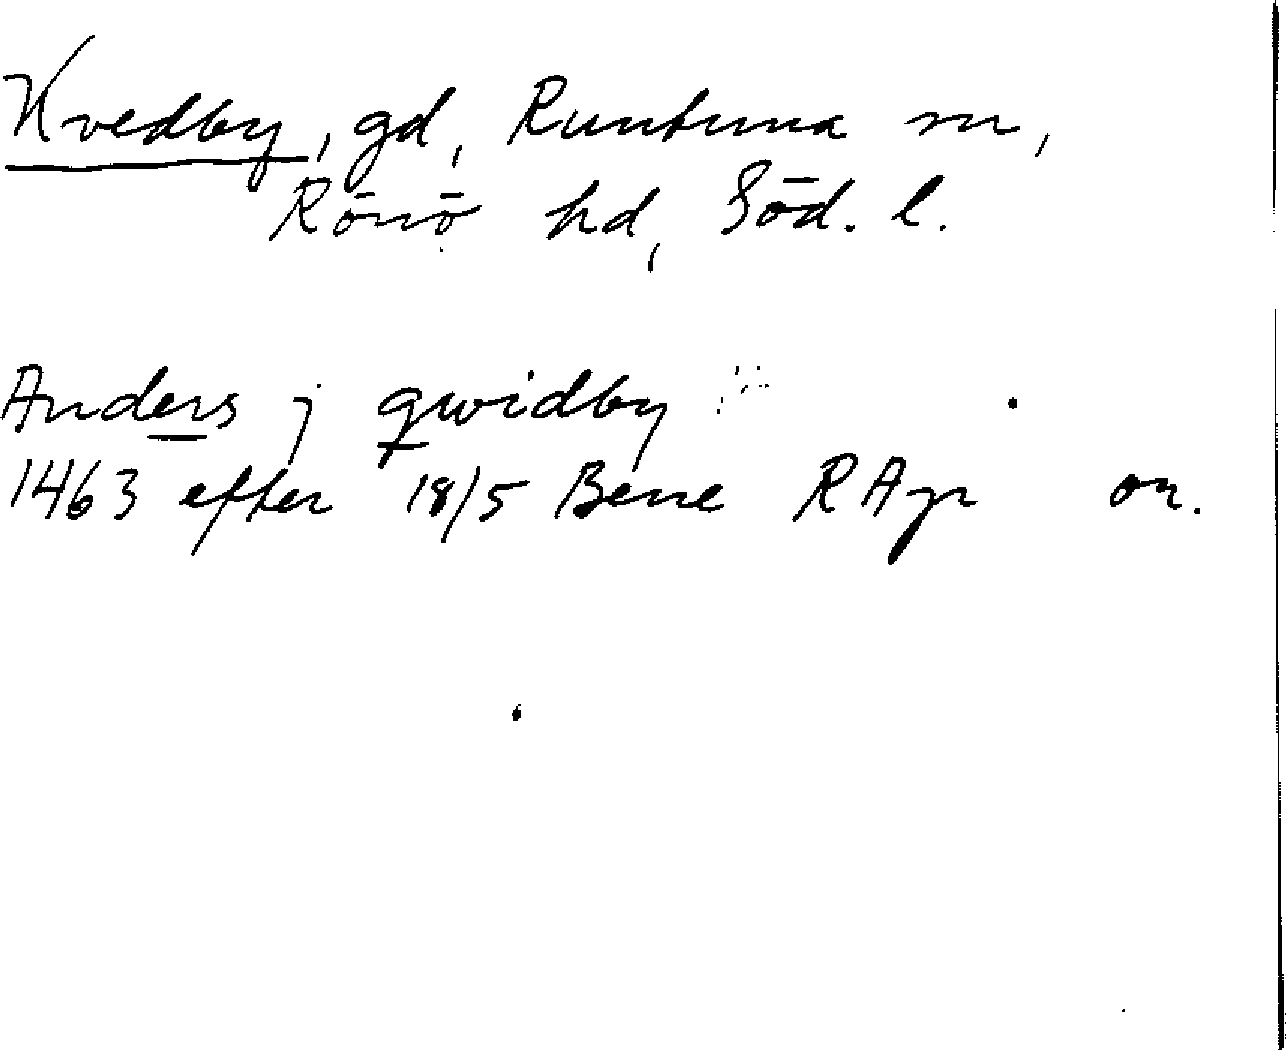 Kvedby, gd, Runtuna sn,
Rönö hd, Söd. l.
Anders j qwidby
1463 efter 18/5 Bene RAp or.